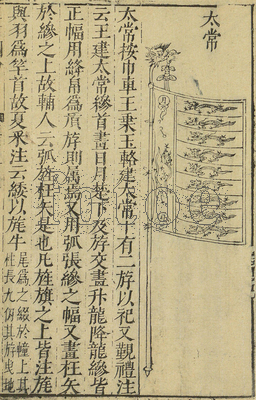 太常
太常按巾車王乗玉輅建太常十有二斿以祀又覲禮注
云王建太常縿首畫日月其下及斿交畫升龍降龍縿皆
正幅用絳帛為質斿則屬焉又用弧張縿之幅又畫枉矢
於縿之上故輈人云弧旌枉矢是也凡旌旗之上皆注旄
與羽為竿首故夏采注云緌以旄牛
尾為之綴於幢上其
杠長九仞其斿曳地